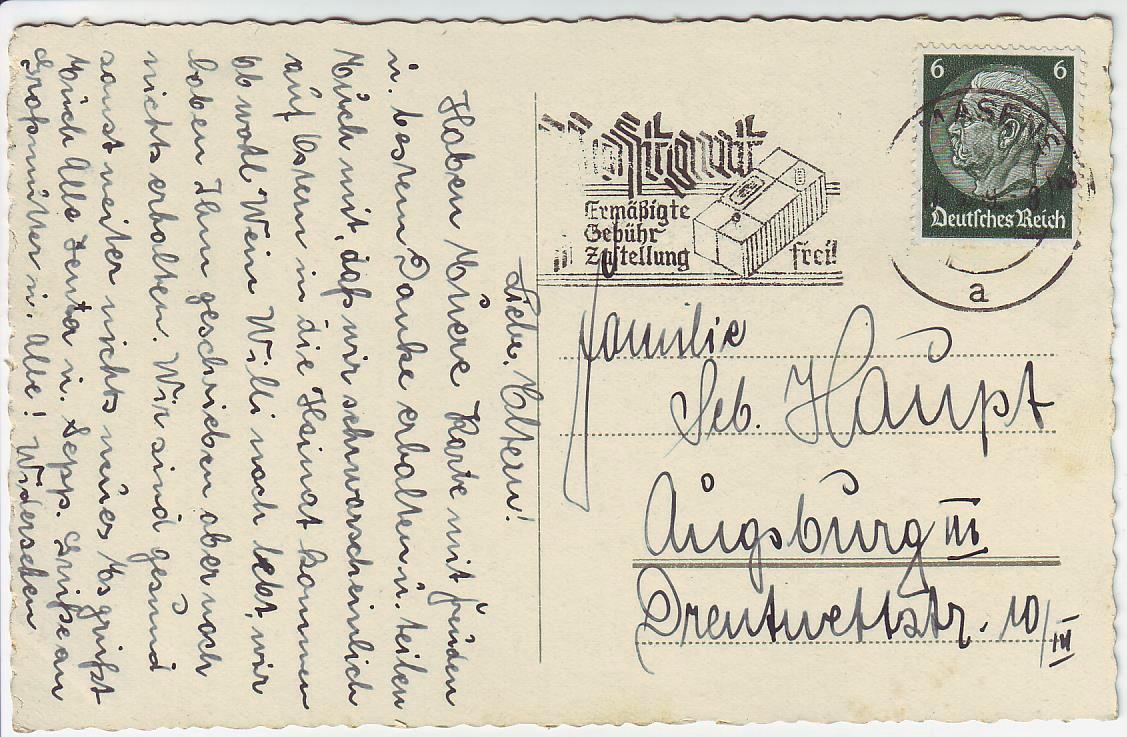 Liebe Eltern!
Haben Eüere Karte mit Freüden
ü. bestem Danke erhalten ü. teilen
Eüch mit, daß wir schwarscheinlich
auf Ostern in die Heimat kommen
Obwohl Wein Willi noch lebt, wir
haben Ihm geschrieben aber noch
nichts erhalten. Wir sind gesünd
sonst weiter nichts neües Es grüßt
Eüch Alle Zenta ü. Sepp. Grüße an
Großmütter ü. Alle! Widersehen
Postgut
Ermäßigte
Gebühr
Zustellung frei!
6 6
Deutsches Reich
a
Familie
Seb. Haüpt
Aügsbürg III
Drentwettstr. 10/III